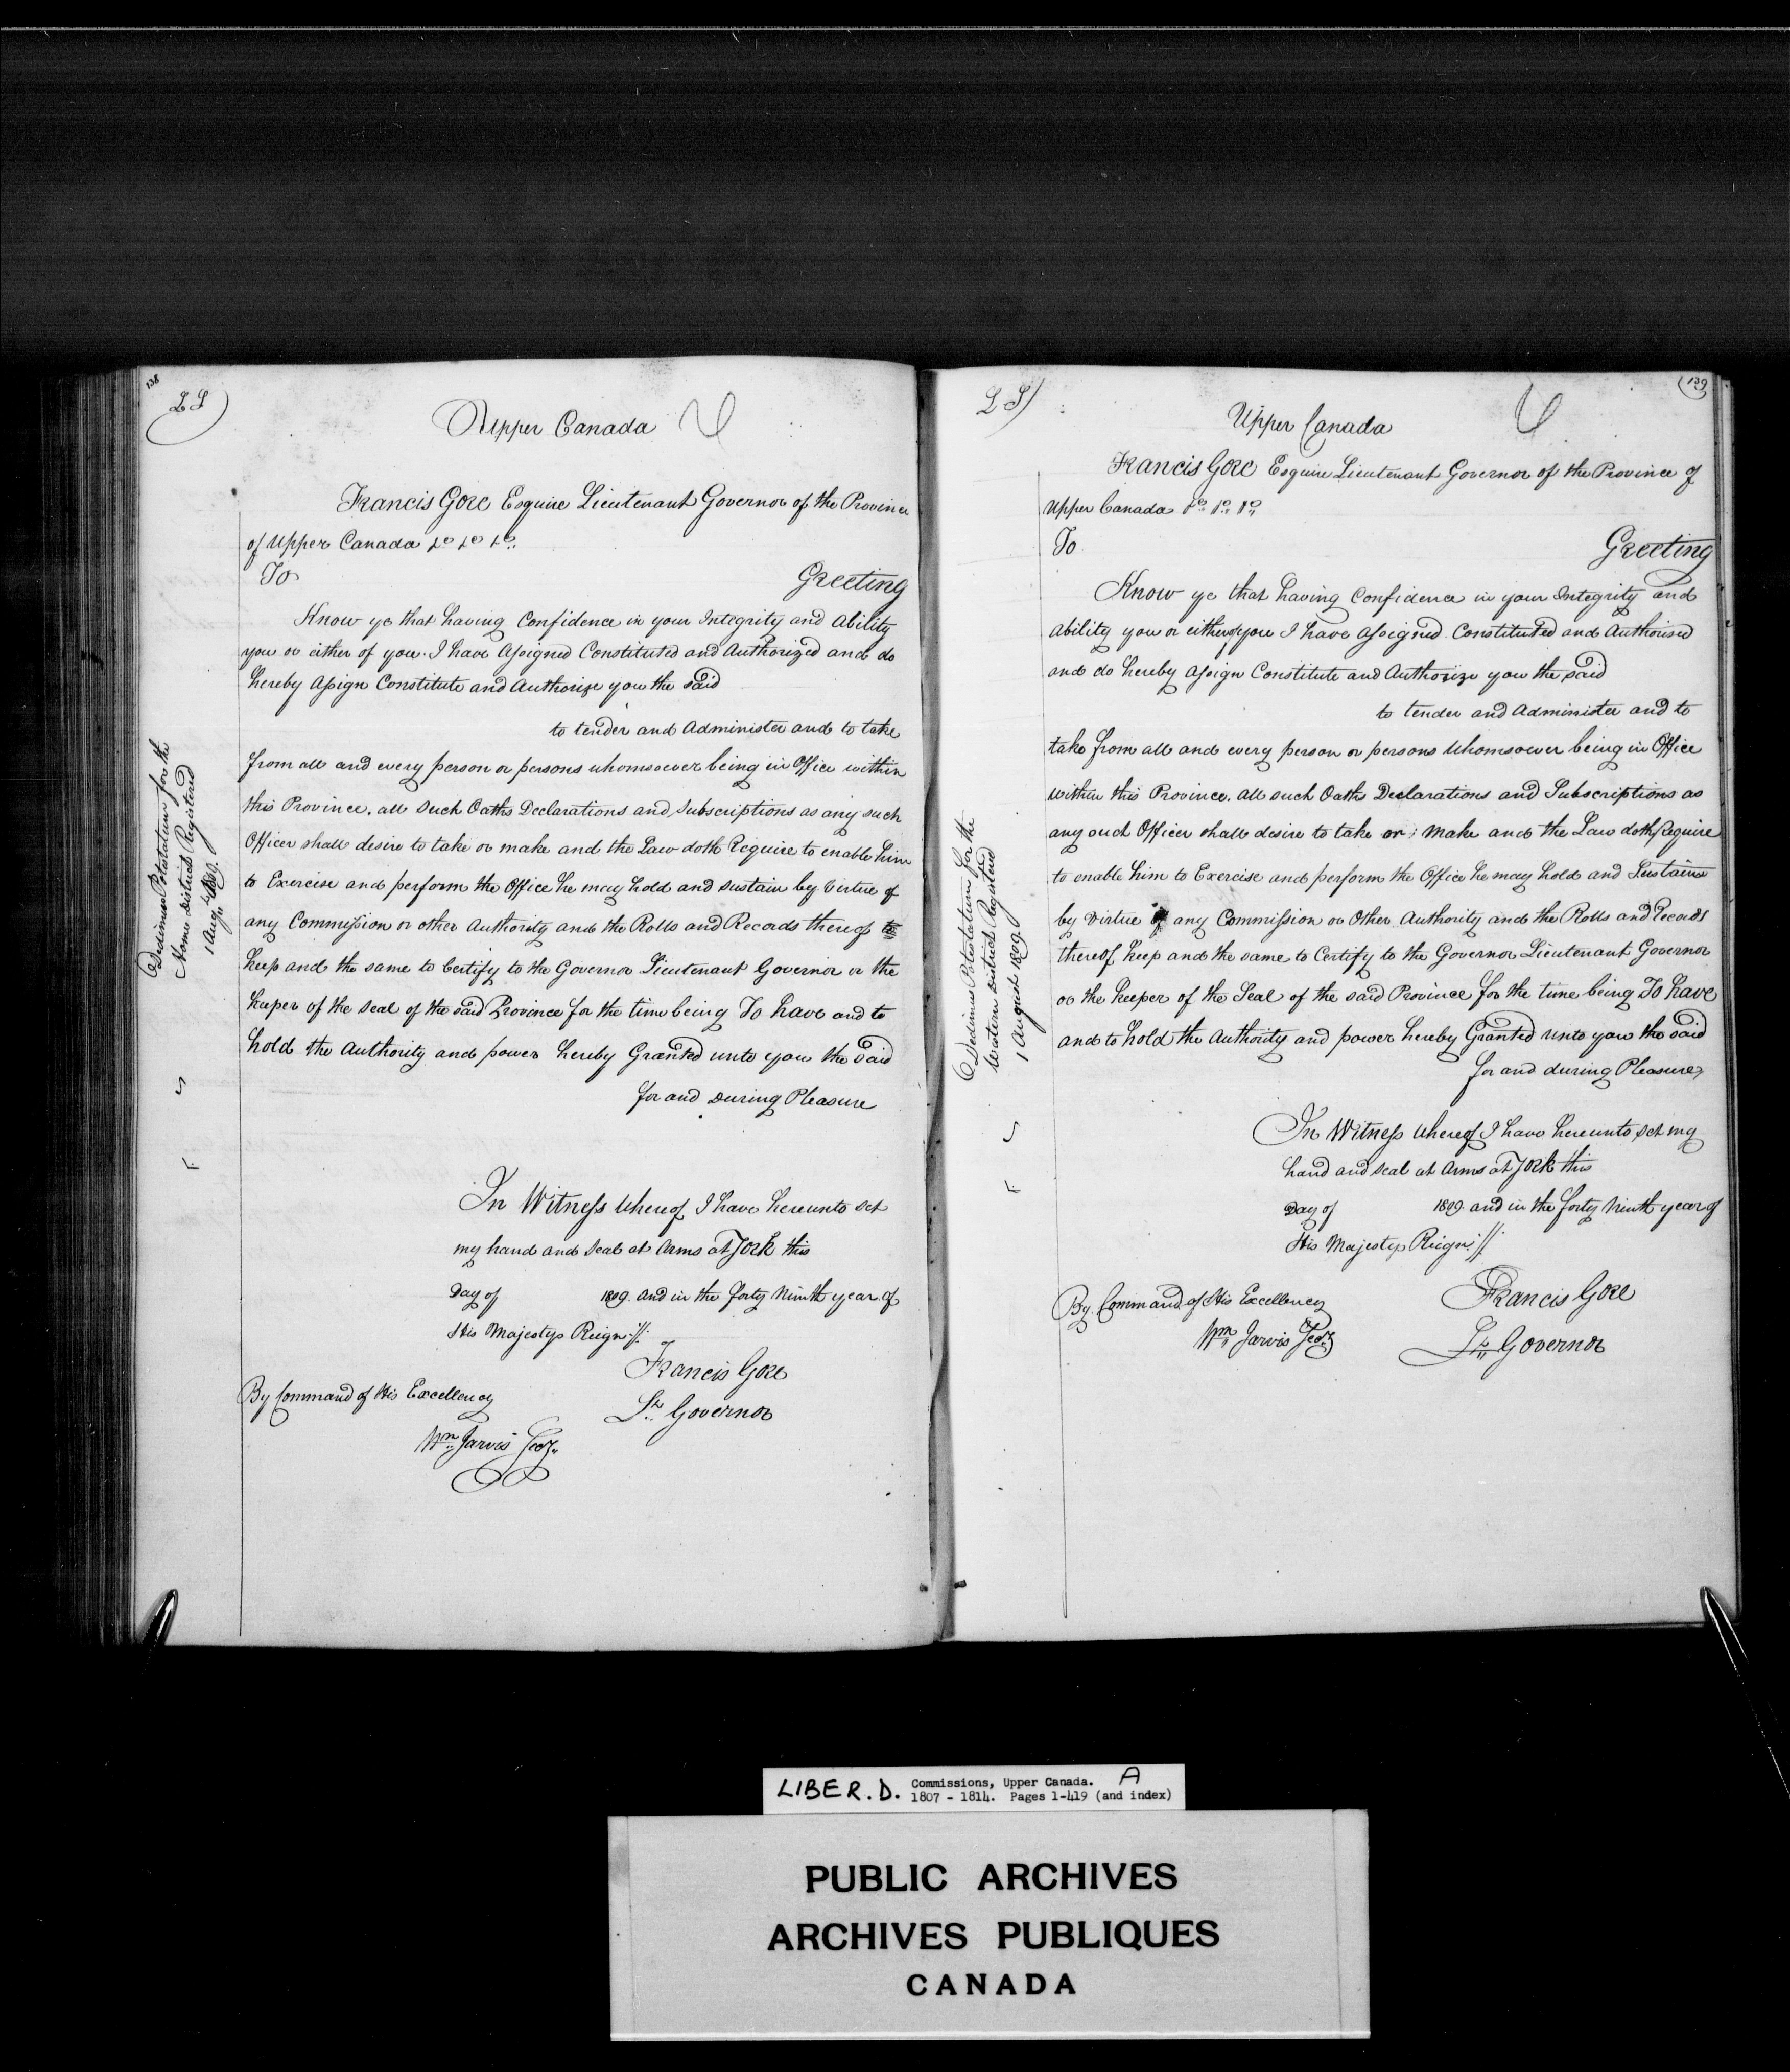 138
L S
Upper Canada
Francis Gore Esquire Lieutenant Governor of the Province
of Upper Canada &c &c &c.
To Greeting
Know ye that having Confidence in your Integrity and Ability
you or either of you. I have Assigned Constituted and Authorized and do
hereby Assign Constitute and Authorize you the said
to tender and Administer and to take
from all and every person or persons whomsoever being in Office within
this Province. all such Oaths Declarations and Subscriptions as any such
Officer shall desire to take or make and the Law doth Require to enable him
to Exercise and perform the Office he may hold and sustain by Virtue of
any Commission or other Authority and the Rolls and Records thereof to
keep and the same to Certify to the Governor Lieutenant Governor or the
keeper of the Seal of the said Province for the time being To have and to
hold the Authority and power hereby Granted unto you the said
for and During Pleasure
In Witness whereof I have hereunto set
my hand and Seal at Arms at York this
Day of 1809. and in the forty Ninth year of
His Majestys Reign://:
Francis Gore
Lt. Governor
By Command of His Excellency
Wm Jarvis Secy.
Dedimus Potestatum for the
Home District Registered
1 Augt. 1809.
139
L S
Upper Canada
Francis Gore Esquire Lieutenant Governor of the Province of
Upper Canada &c &c &c
To Greeting
Know ye that having Confidence in your Integrity and
Ability you or either of you I have Assigned Constituted and Authorised
and do hereby Assign Constitute and Authorize you the said
to tender and Administer and to
take from all and every person or persons Whomsoever being in Office
within this Province. all such Oaths Declarations and Subscriptions as
any such Officer shall desire to take or make and the Law doth Require
to enable him to Exercise and perform the Office he may hold and Sustain
by Virtue of any Commission or Other Authority and the Rolls and Records
thereof keep and the same to Certify to the Governor Lieutenant Governor
or the keeper of the Seal of the said Province for the time being To have
and to hold the Authority and power hereby Granted unto you the said
for and during Pleasure
In Witness whereof I have hereunto set my
hand and Seal at Arms at York this
Day of 1809. and in the forty Ninth year of
His Majestys Reign://:
Francis Gore
Lt. Governor
By Command of His Excellency
Wm Jarvis Secy
Dedimus Potestatum for the
Western District Registered
1 August 1809.
LIBER. D. Commissions, Upper Canada. A
1807 - 1814. Pages 1-419 (and index)
PUBLIC ARCHIVES
ARCHIVES PUBLIQUES
CANADA